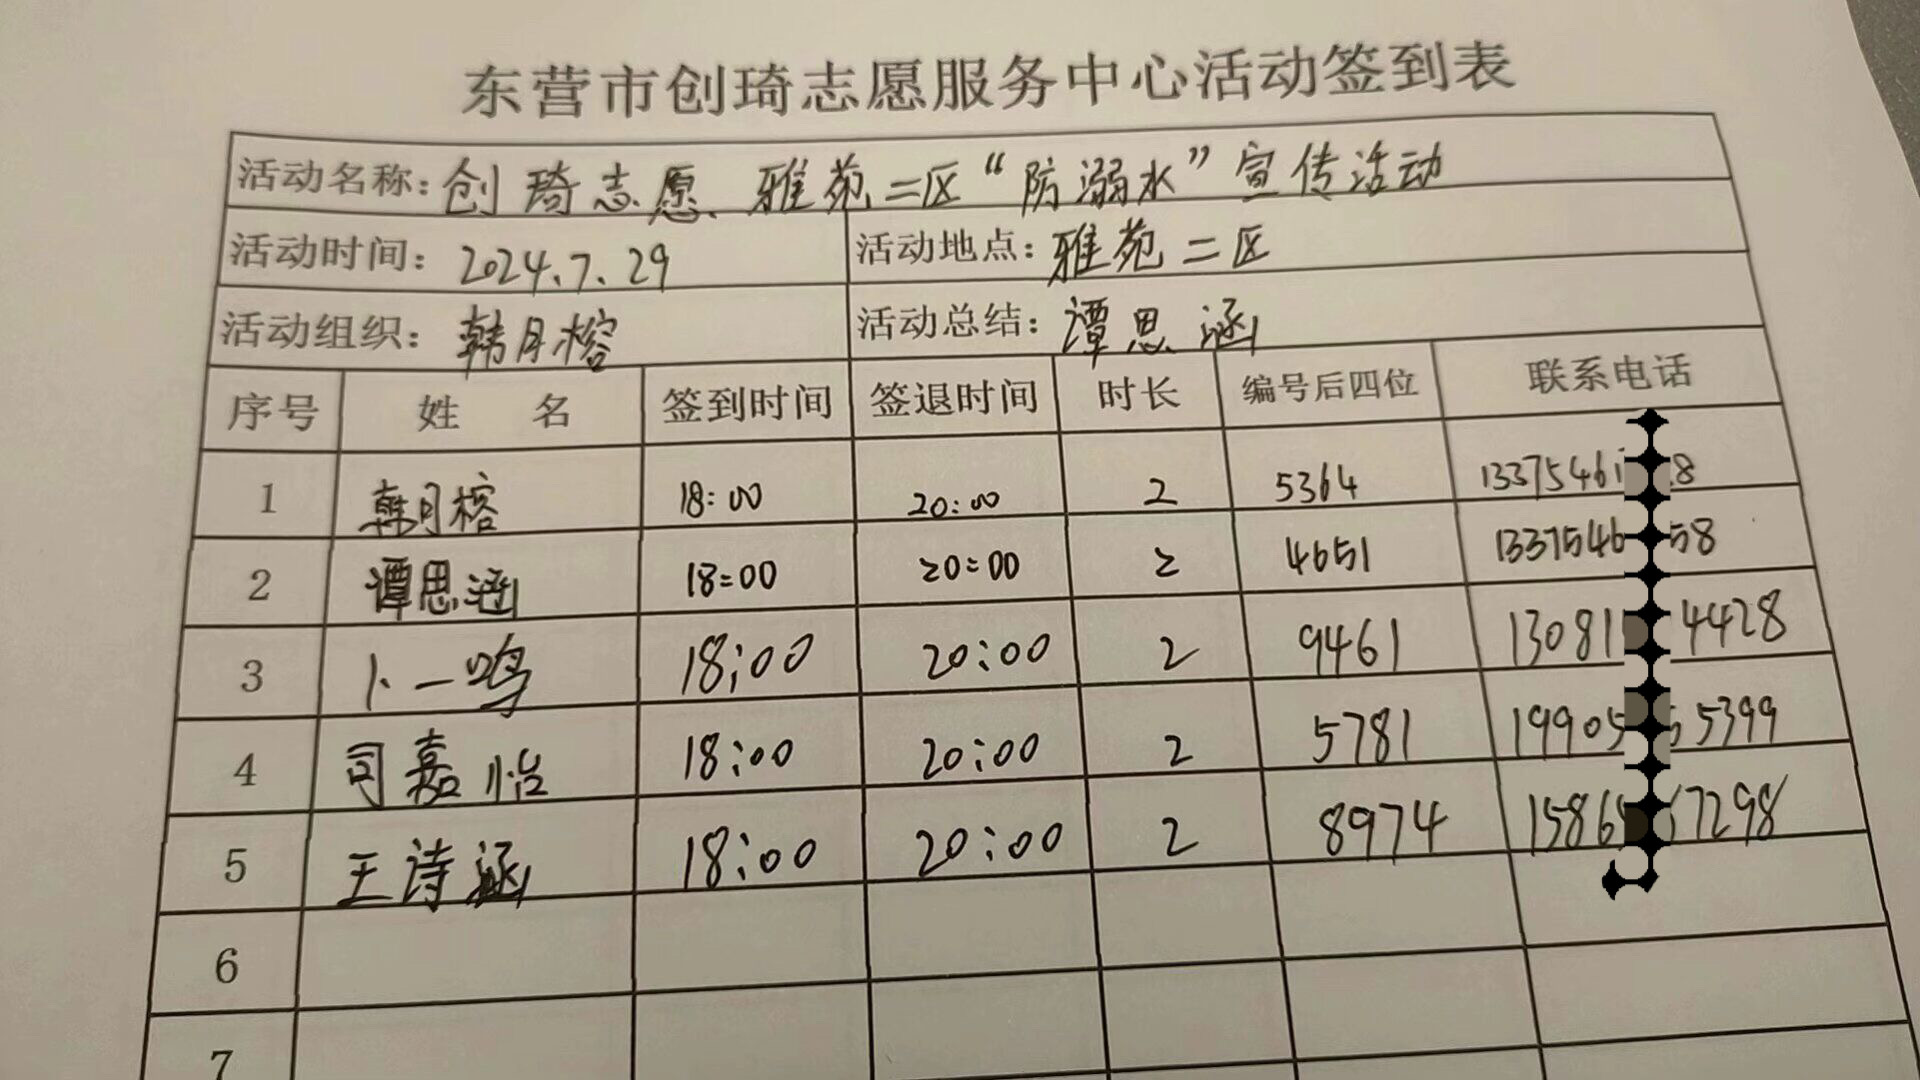 东营市创琦志愿服务中心活动签到表
活动名称：创琦志愿、雅苑二区“防溺水”宣传活动
活动时间：2024.7.29 活动地点：雅苑二区
活动组织：韩月榕 活动总结：谭思涵
序号 姓名 签到时间 签退时间 时长 编号后四位 联系电话
1 韩月榕 18:00 20:00 2 5364 13375461 8
2 谭思涵 18:00 20:00 2 4651 1337546 58
3 卜一鸣 18:00 20:00 2 9461 13081 4428
4 司嘉怡 18:00 20:00 2 5781 19905 5399
5 王诗涵 18:00 20:00 2 8974 1586 7298
6
7